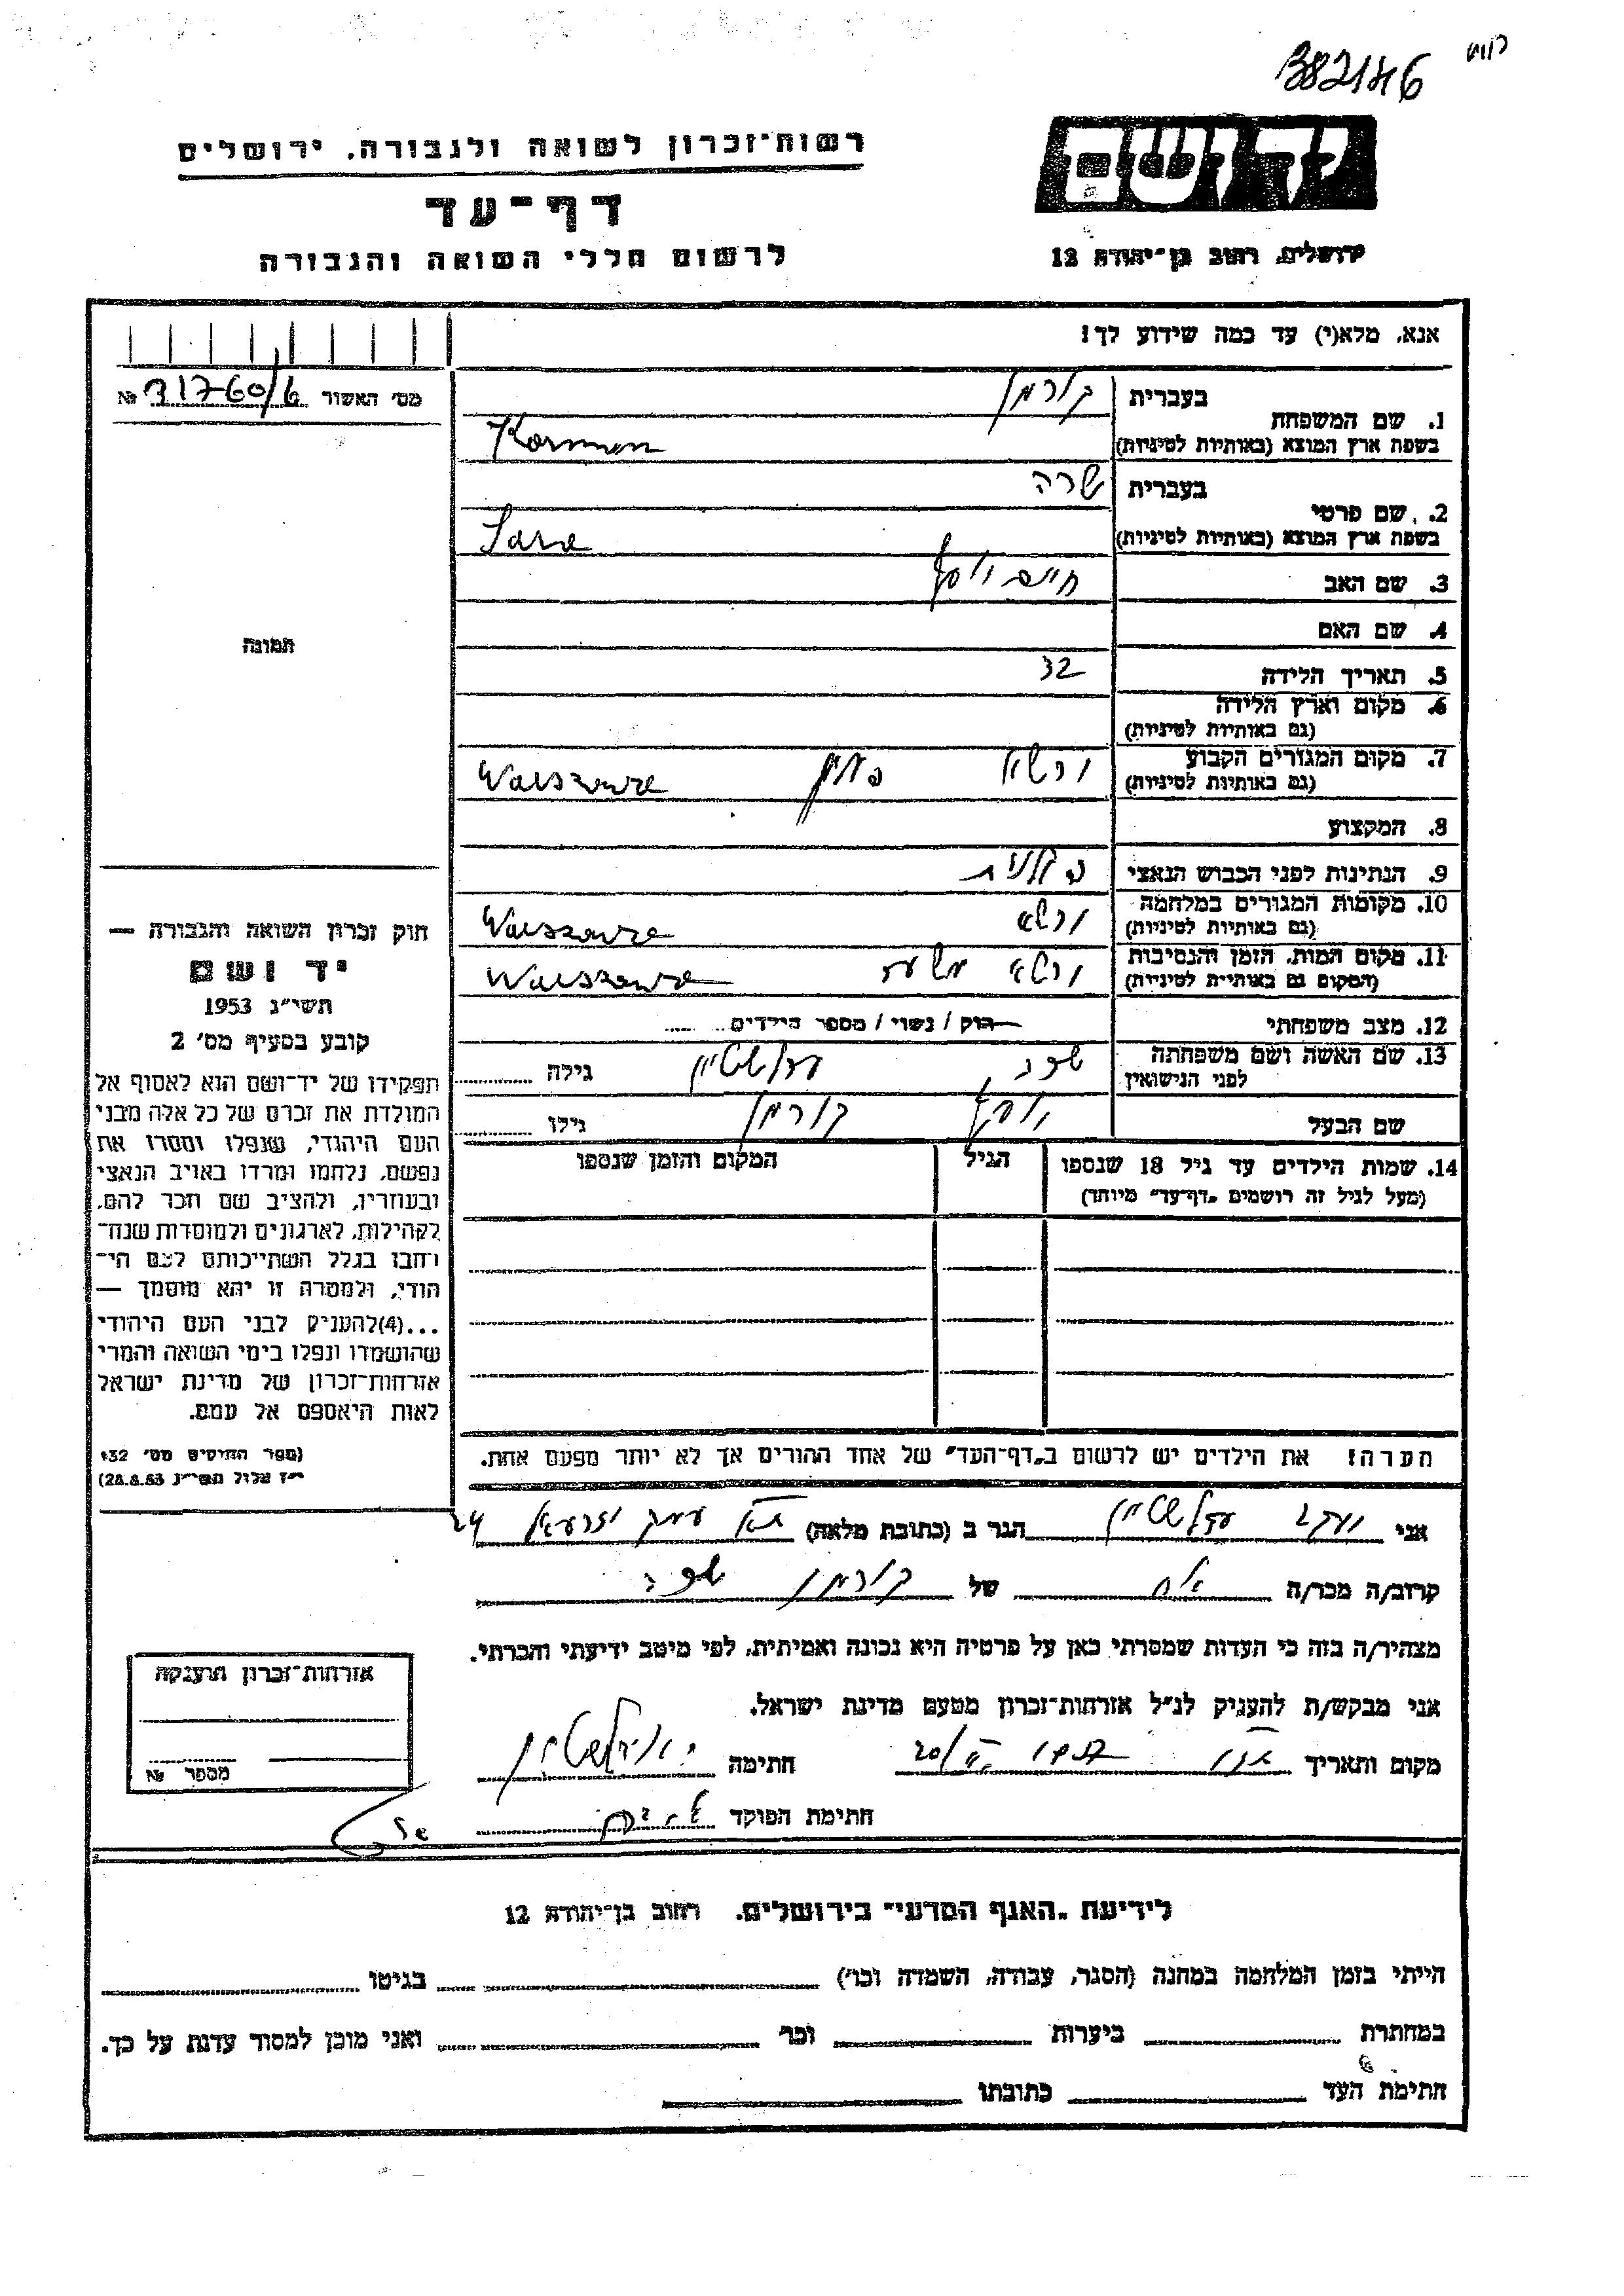 382146
רשות־זכרון לשואה ולגבורה, ירושלים
יד ושם
דף־עד
לרשום חללי השואה והגבורה
ירושלים, רחוב בן־יהודה 12
אנא, מלא(י) עד כמה שידוע לך!
מס׳ האשור № 31760/6
1. שם המשפחה בעברית קורמן
בשפת ארץ המוצא (באותיות לטיניות) Korman
2. שם פרטי בעברית שרה
בשפת ארץ המוצא (באותיות לטיניות) Sara
3. שם האב חיים יוסף
תמונה
4. שם האם
5. תאריך הלידה 32
6. מקום וארץ הלידה
(גם באותיות לטיניות)
7. מקום המגורים הקבוע ורשא פולין Warszawa
(גם באותיות לטיניות)
8. המקצוע
9. הנתינות לפני הכבוש הנאצי פולנית
10. מקומות המגורים במלחמה ורשא Warszawa
(גם באותיות לטיניות)
11. מקום המות, הזמן והנסיבות ורשא Warszawa
(המקום גם באותיות לטיניות)
12. מצב משפחתי רוק / נשוי / מספר הילדים
13. שם האשה ושם משפחתה לפני הנישואין שרה גילה
שם הבעל יוסף קורמן גילו
14. שמות הילדים עד גיל 18 שנספו הגיל המקום והזמן שנספו
(מעל לגיל זה רושמים „דף־עד״ מיוחד)
חוק זכרון השואה והגבורה —
יד ושם
תשי״ג 1953
קובע בסעיף מס׳ 2
תפקידו של יד־ושם הוא לאסוף אל
המולדת את זכרם של כל אלה מבני
העם היהודי, שנפלו ומסרו את
נפשם, נלחמו ומרדו באויב הנאצי
ובעוזריו, ולהציב שם וזכר להם,
לקהילות, לארגונים ולמוסדות שנח־
רחבו בגלל השתייכותם לעם הי־
הודי, ולמטרה זו יהא מוסמך —
...(4)להעניק לבני העם היהודי
שהושמדו ונפלו בימי השואה והמרי
אזרחות־זכרון של מדינת ישראל
לאות היאספם אל עמם.
(ספר החוקים מס׳ 132
י״ז אלול תשי״ג 28.8.53)
הערה! את הילדים יש לרשום ב„דף־העד״ של אחד ההורים אך לא יותר מפעם אחת.
אני יעקב הגר ב (כתובת מלאה) ת״א עמק יזרעאל 24
קרוב/ה מכר/ה אח של קורמן שרה
מצהיר/ה בזה כי העדות שמסרתי כאן על פרטיה היא נכונה ואמיתית, לפי מיטב ידיעתי והכרתי.
אני מבקש/ת להעניק לנ״ל אזרחות־זכרון מטעם מדינת ישראל.
מקום ותאריך חתימה
חתימת הפוקד
אזרחות־זכרון הוענקה
מספר №
לידיעת „האגף המדעי״ בירושלים, רחוב בן־יהודה 12
הייתי בזמן המלחמה במחנה (הסגר, עבודה, השמדה וכו׳) בגיטו
במחתרת ביערות וכו׳ ואני מוכן למסור עדות על כך.
חתימת העד כתובתו